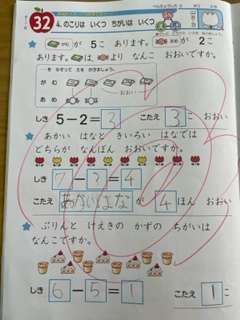 32 4. のこりは いくつ ちがいは いくつ
が 5こ あります。 が 2こ
あります。 は より なんこ おおいですか。
をなぞって えを かきましょう。
がむ
あめ
しき 5-2=3 こたえ 3こ おおい
あかい はなと きいろい はなでは
どちらが なんぼん おおいですか。
しき 7-3=4
こたえ あかいはなが 4ほん おおい
ぷりんと けえきの かずの ちがいは
なんこですか。
しき 6-5=1 こたえ 1こ